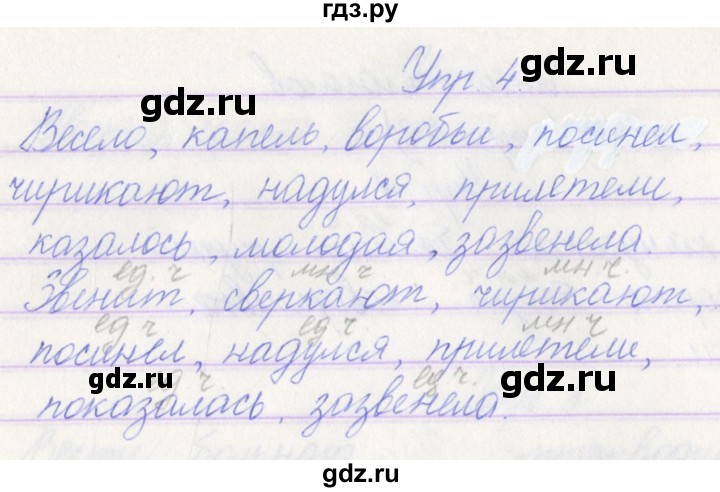 гдз.ру
Упр 4.
gdz.ru
gdz.ru
Весело, капель, воробьи, посинел,
чирикают, надулся, прилетели,
казалось, молодая, зазвенела.
ед. ч мн ч мн ч.
Звенит, сверкают, чирикают,
gdz.ru
ед ч ед ч мн ч
посинел, надулся, прилетели,
gdz.ru
д ч. ед ч.
показалась, зазвенела.
gdz.ru